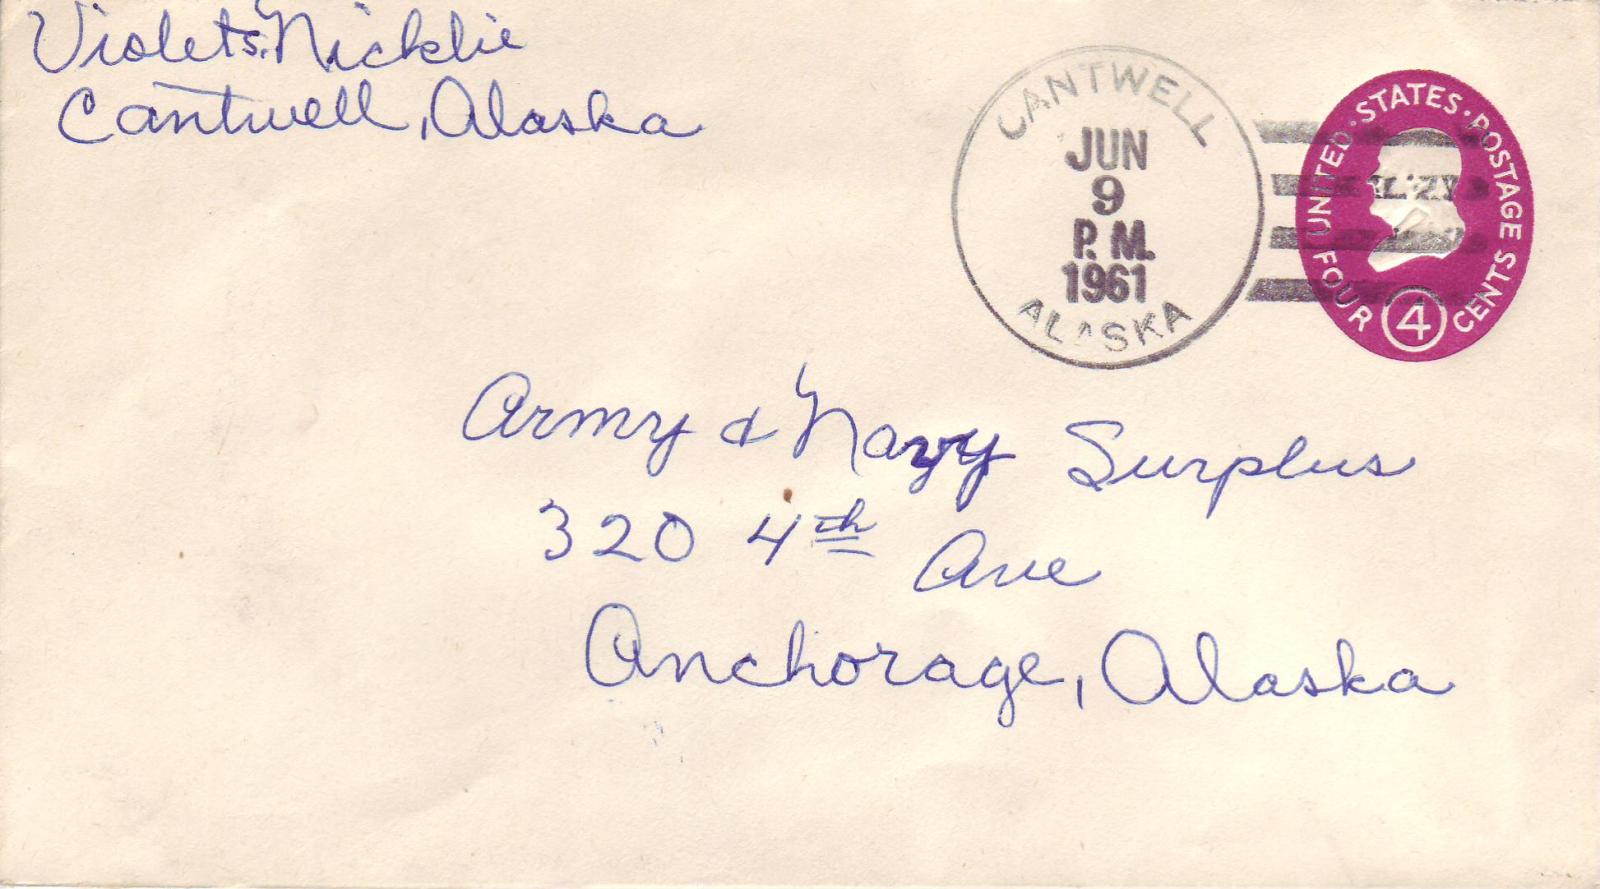 Violet S. Nicklie
Cantwell, Alaska
CANTWELL
JUN
9
P. M.
1961
ALASKA
UNITED · STATES · POSTAGE
FOUR 4 CENTS
Army & Navy Surplus
320 4th Ave
Anchorage, Alaska